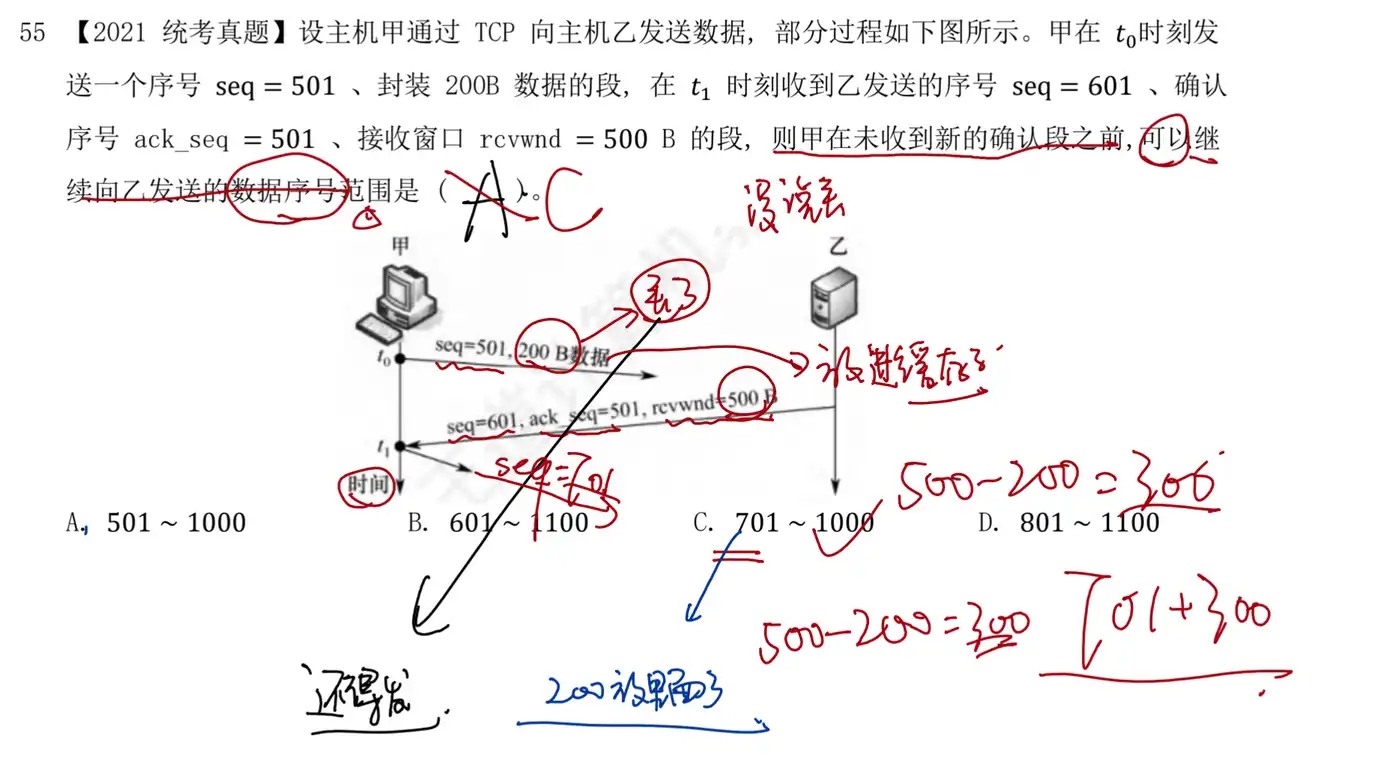 55 【2021 统考真题】设主机甲通过 TCP 向主机乙发送数据，部分过程如下图所示。甲在 t₀时刻发
送一个序号 seq = 501 、封装 200B 数据的段，在 t₁ 时刻收到乙发送的序号 seq = 601 、确认
序号 ack_seq = 501 、接收窗口 rcvwnd = 500 B 的段，则甲在未收到新的确认段之前，可以继
续向乙发送的数据序号范围是（ A ）。 C
没说丢
甲
乙
丢了
t₀
seq=501, 200 B数据
放进缓存了
seq=601, ack_seq=501, rcvwnd=500 B
t₁
seq=701
时间
500-200=300
A. 501 ~ 1000
B. 601 ~ 1100
C. 701 ~ 1000
D. 801 ~ 1100
500-200=300
701+300
还得发
200放里面了